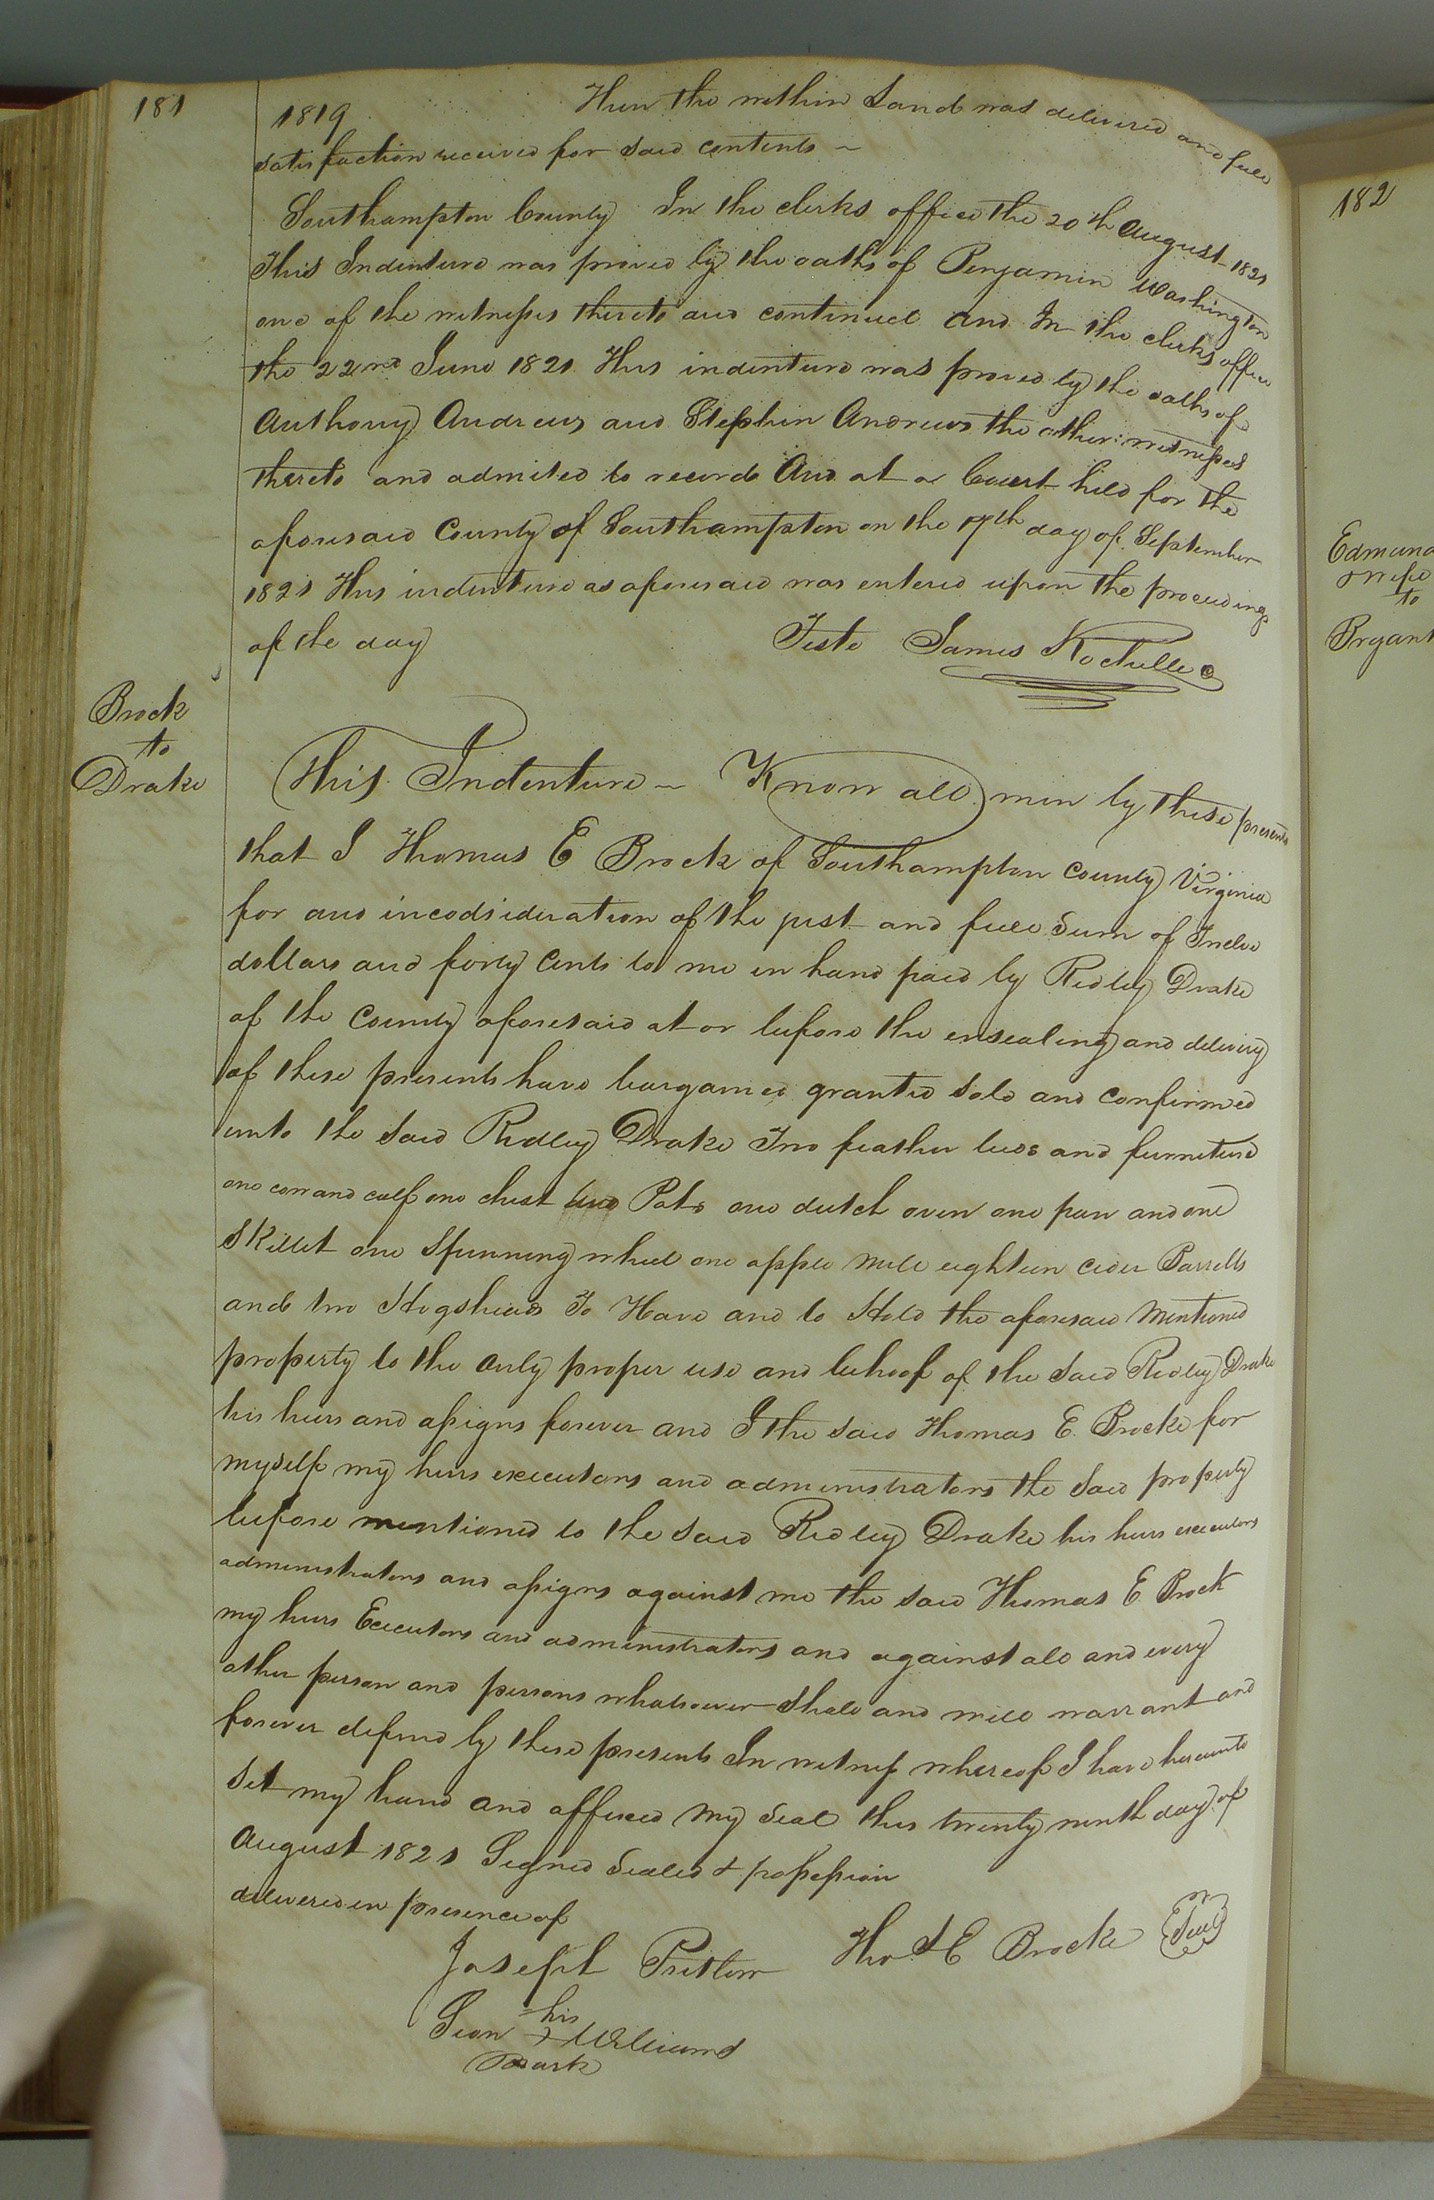 181
1819 Then the within Land was delivered and full
satisfaction received for said contents ~
Southampton County In the clerks office the 20th August 1821
This Indenture was proved by the oaths of Benjamin Washington
one of the witnesses thereto and continued and In the clerks office
the 22nd June 1821 This indenture was proved by the oaths of
Anthony Andrews and Stephen Andrews the other witnesses
thereto and admited to record And at a Court held for the
aforesaid County of Southampton on the 17th day of September
1821 This indenture as aforesaid was entered upon the proceedings
of the day Teste James Rochelle
Brock
to
Drake
This Indenture ~ Know all men by these presents
that I Thomas E Brock of Southampton County Virginia
for and incodsideration of the just and full Sum of Twelve
dollars and forty Cents to me in hand paid by Ridley Drake
of the County aforesaid at or before the ensealing and delivery
of these presents have bargained granted Sold and confirmed
unto the Said Ridley Drake Two feather beds and furniture
one cow and calf one chest Pots one dutch oven one pan and one
Skillet one Spinning wheel one apple Mill eighteen cider Barrells
and two Hogsheads To Have and to Hold the aforesaid Mentioned
property to the only proper use and behoof of the Said Ridley Drake
his heirs and assigns forever and I the said Thomas E. Brocke for
myself my heirs executors and administrators the Said property
before mentioned to the Said Ridley Drake his heirs executors
administrators and assigns against me the said Thomas E. Brock
my heirs Executors and administrators and against all and every
other person and persons whatsoever Shall and will warrant and
forever defend by these presents In witness whereof I have hereunto
Set my hand and affixed My Seal this twenty ninth day of
August 1821 Signed Sealed & possession
delivered in presence of
Joseph Pretlow Tho S E Brocke Seal
his
Sion X Williams
Mark
182
Edmund
& wife
to
Bryant